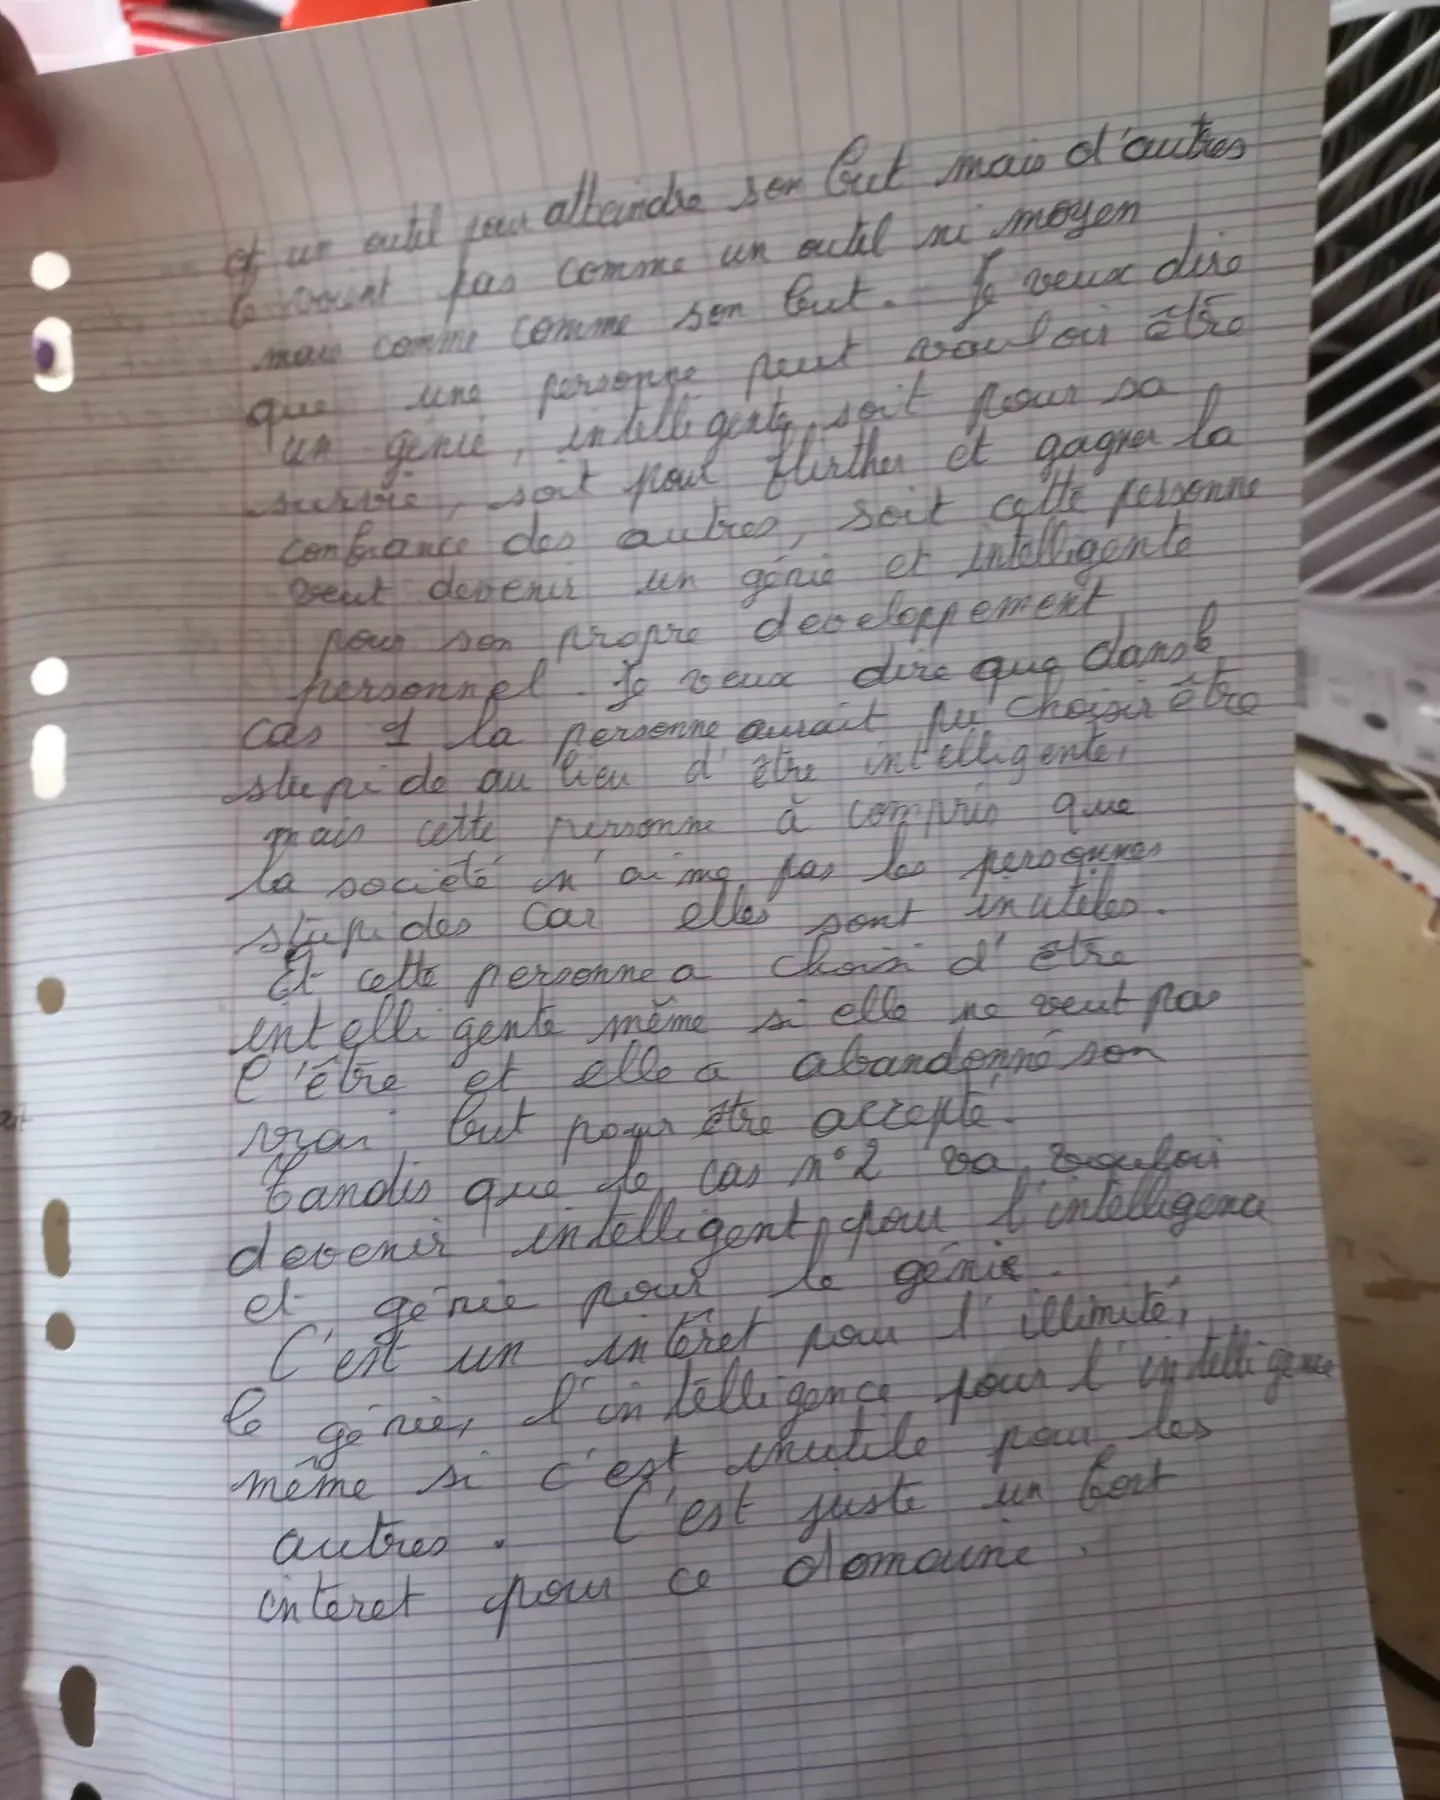 et un outil pour atteindre son but mais d'autres
le voient pas comme un outil ni moyen
mais comme comme son but. Je veux dire
que une personne peut vouloir être
un génie, intelligente, soit pour sa
survie, soit pour flirther et gagner la
confiance des autres, soit cette personne
veut devenir un génie et intelligente
pour son propre developpement
personnel. Je veux dire que dans le
cas 1 la personne aurait pu choisir être
stupide au lieu d'être intelligente,
mais cette personne à compris que
la société n'aime pas les personnes
stupides car elles sont inutiles.
Et cette personne a choisi d'être
intelligente même si elle ne veut pas
l'être et elle a abandonné son
vrai but pour être accepté.
tandis que le cas n°2 va vouloir
devenir intelligent pour l'intelligence
et génie pour le génie.
C'est un intêret pour l'illimité,
le génie, l'intelligence pour l'intelligence
même si c'est inutile pour les
autres. C'est juste un fort
intêret pour ce domaine.